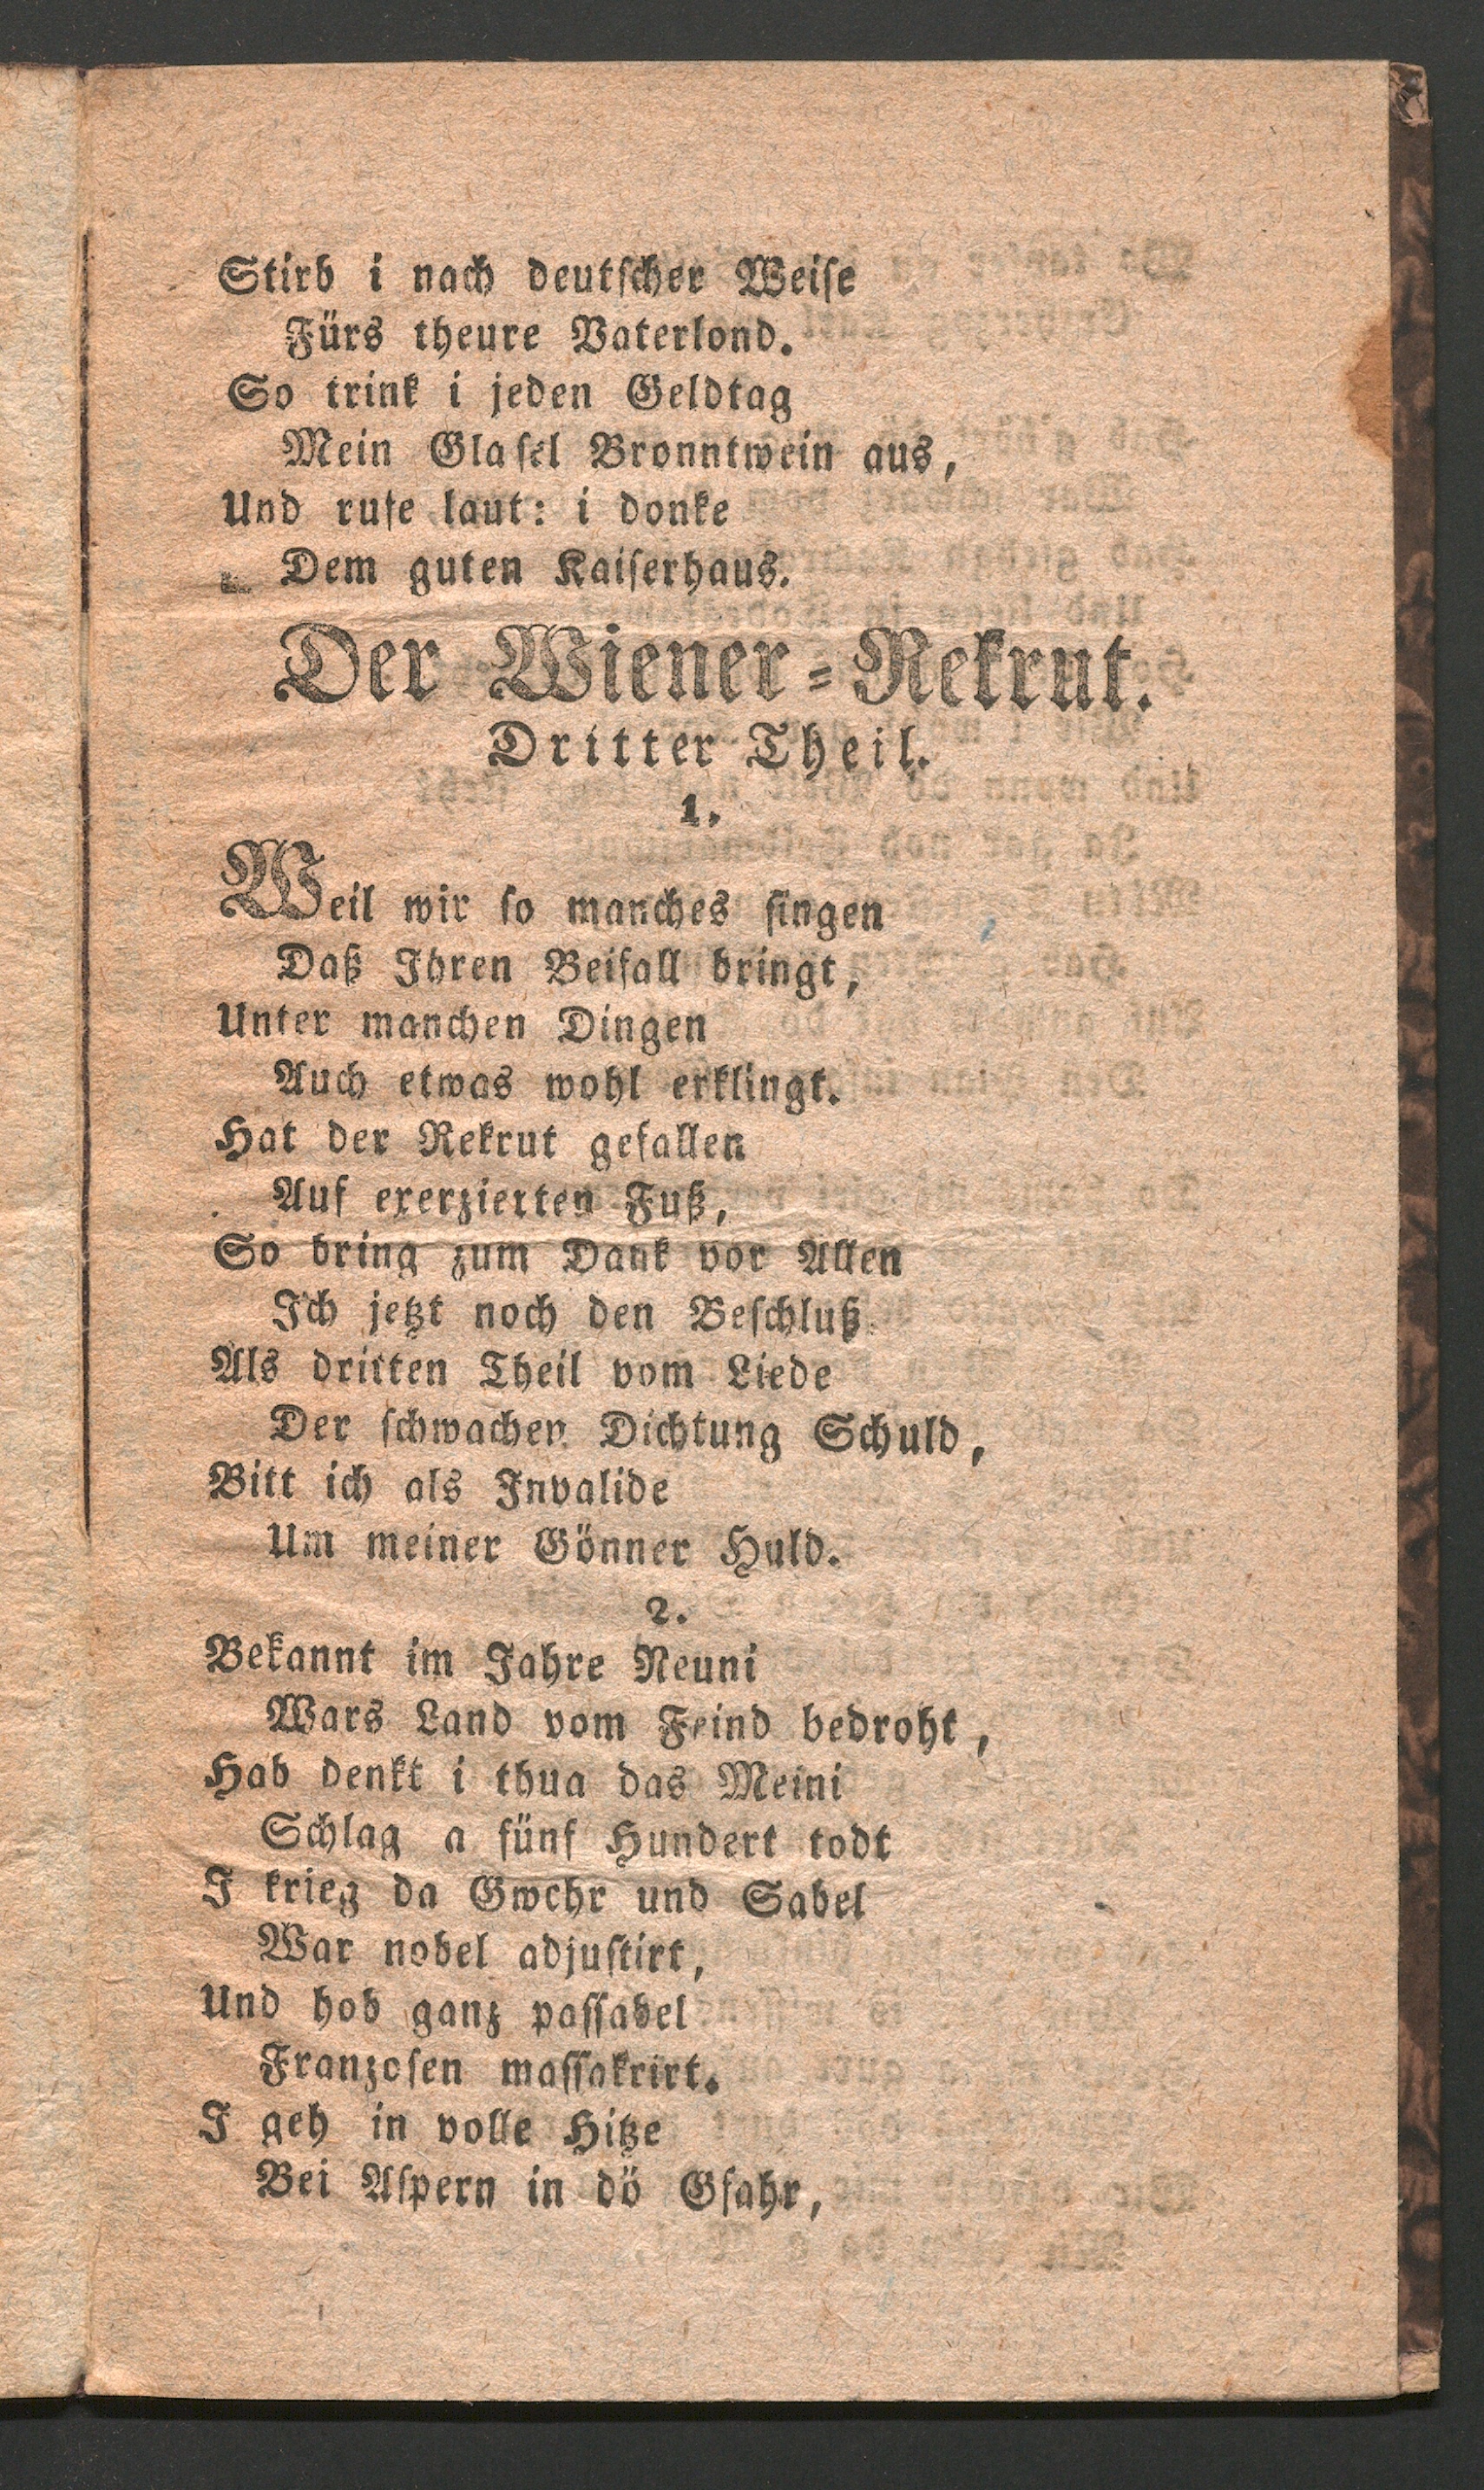 Stirb i nach deutſcher Weiſe
Fürs theure Vaterlond.
So trink i jeden Geldtag
Mein Glaſel Bronntwein aus,
Und rufe laut: i donke
Dem guten Kaiſerhaus.
Der Wiener-Rekrut.
Dritter Theil.
1.
Weil wir ſo manches ſingen
Daß Ihren Beifall bringt,
Unter manchen Dingen
Auch etwas wohl erklingt.
Hat der Rekrut gefallen
Auf exerzierten Fuß,
So bring zum Dank vor Allen
Ich jetzt noch den Beſchluß
Als dritten Theil vom Liede
Der ſchwachen Dichtung Schuld,
Bitt ich als Invalide
Um meiner Gönner Huld.
2.
Bekannt im Jahre Neuni
Wars Land vom Feind bedroht,
Hab denkt i thua das Meini
Schlag a fünf Hundert todt
I krieg da Gwehr und Sabel
War nobel adjuſtirt,
Und hob ganz paſſabel
Franzoſen maſſakrirt.
I geh in volle Hitze
Bei Aſpern in dö Gfahr,